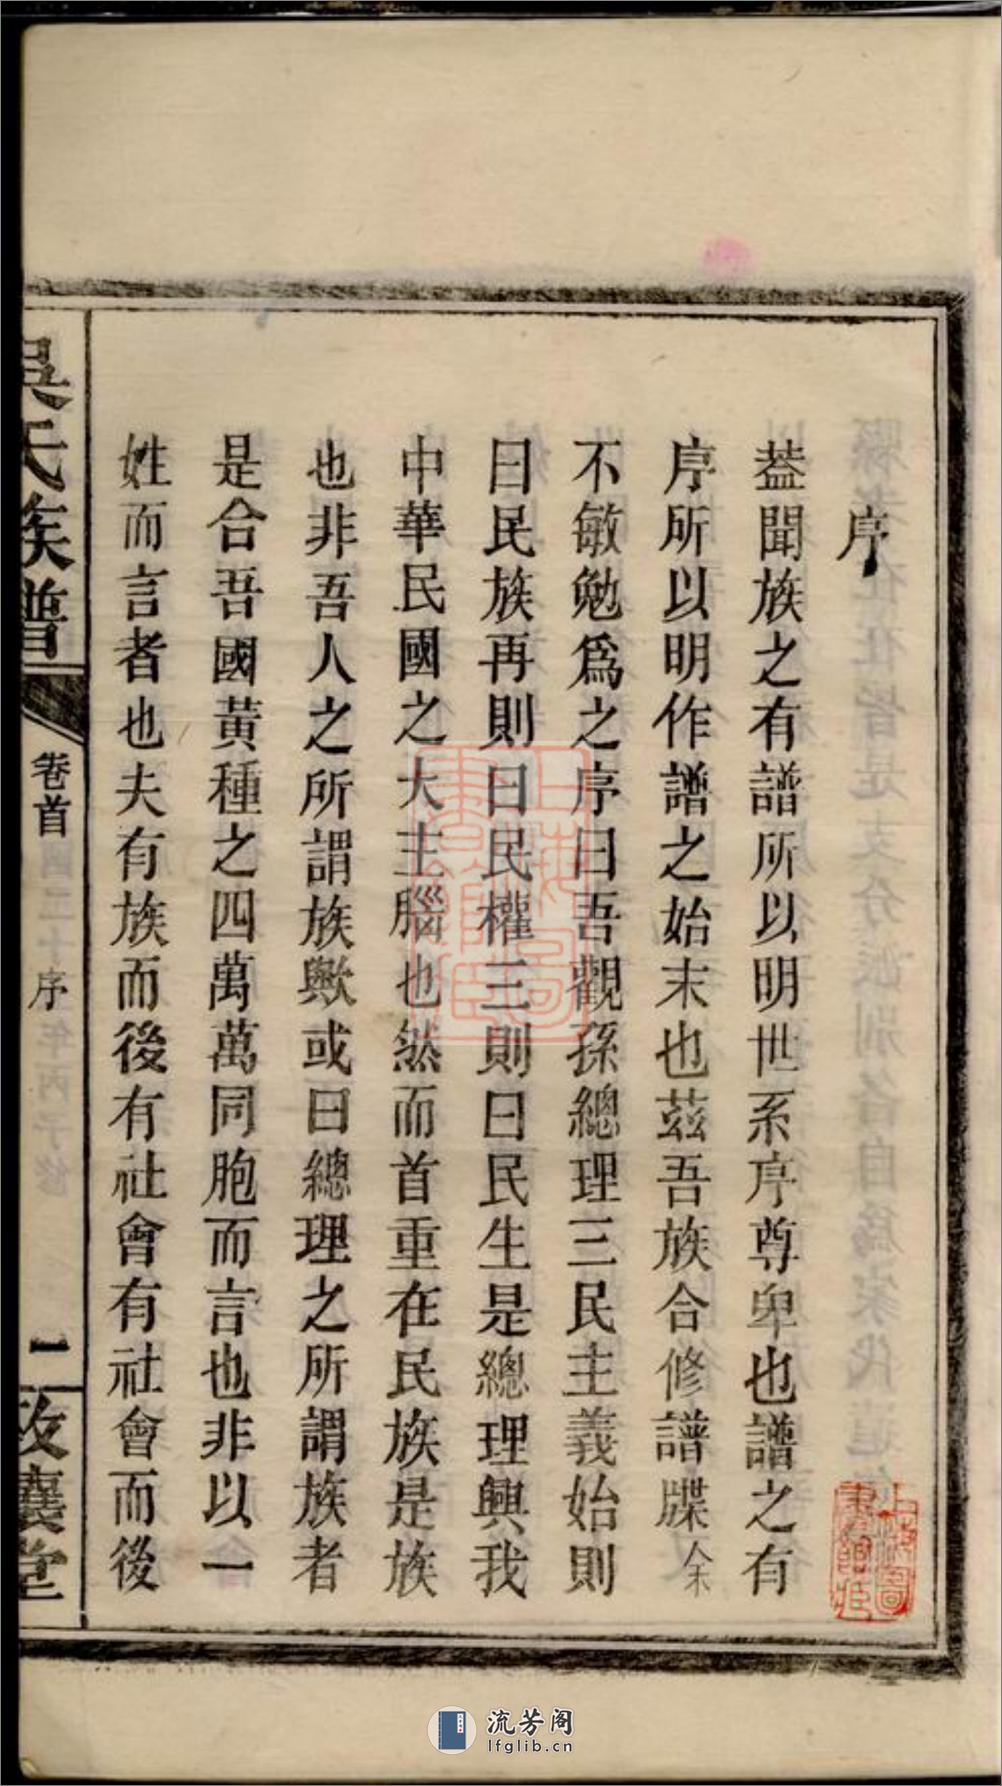 序
葢聞族之有譜所以明世系序尊卑也譜之有
序所以明作譜之始末也茲吾族合修譜牒余
不敏勉爲之序曰吾觀孫總理三民主義始則
曰民族再則曰民權三則曰民生是總理興我
中華民國之大主腦也然而首重在民族是族
也非吾人之所謂族歟或曰總理之所謂族者
是合吾國黃種之四萬萬同胞而言也非以一
姓而言者也夫有族而後有社會有社會而後
吳氏族譜
卷首
序
二
改襄堂
上海圖書館藏
流芳阁
lfglib.cn